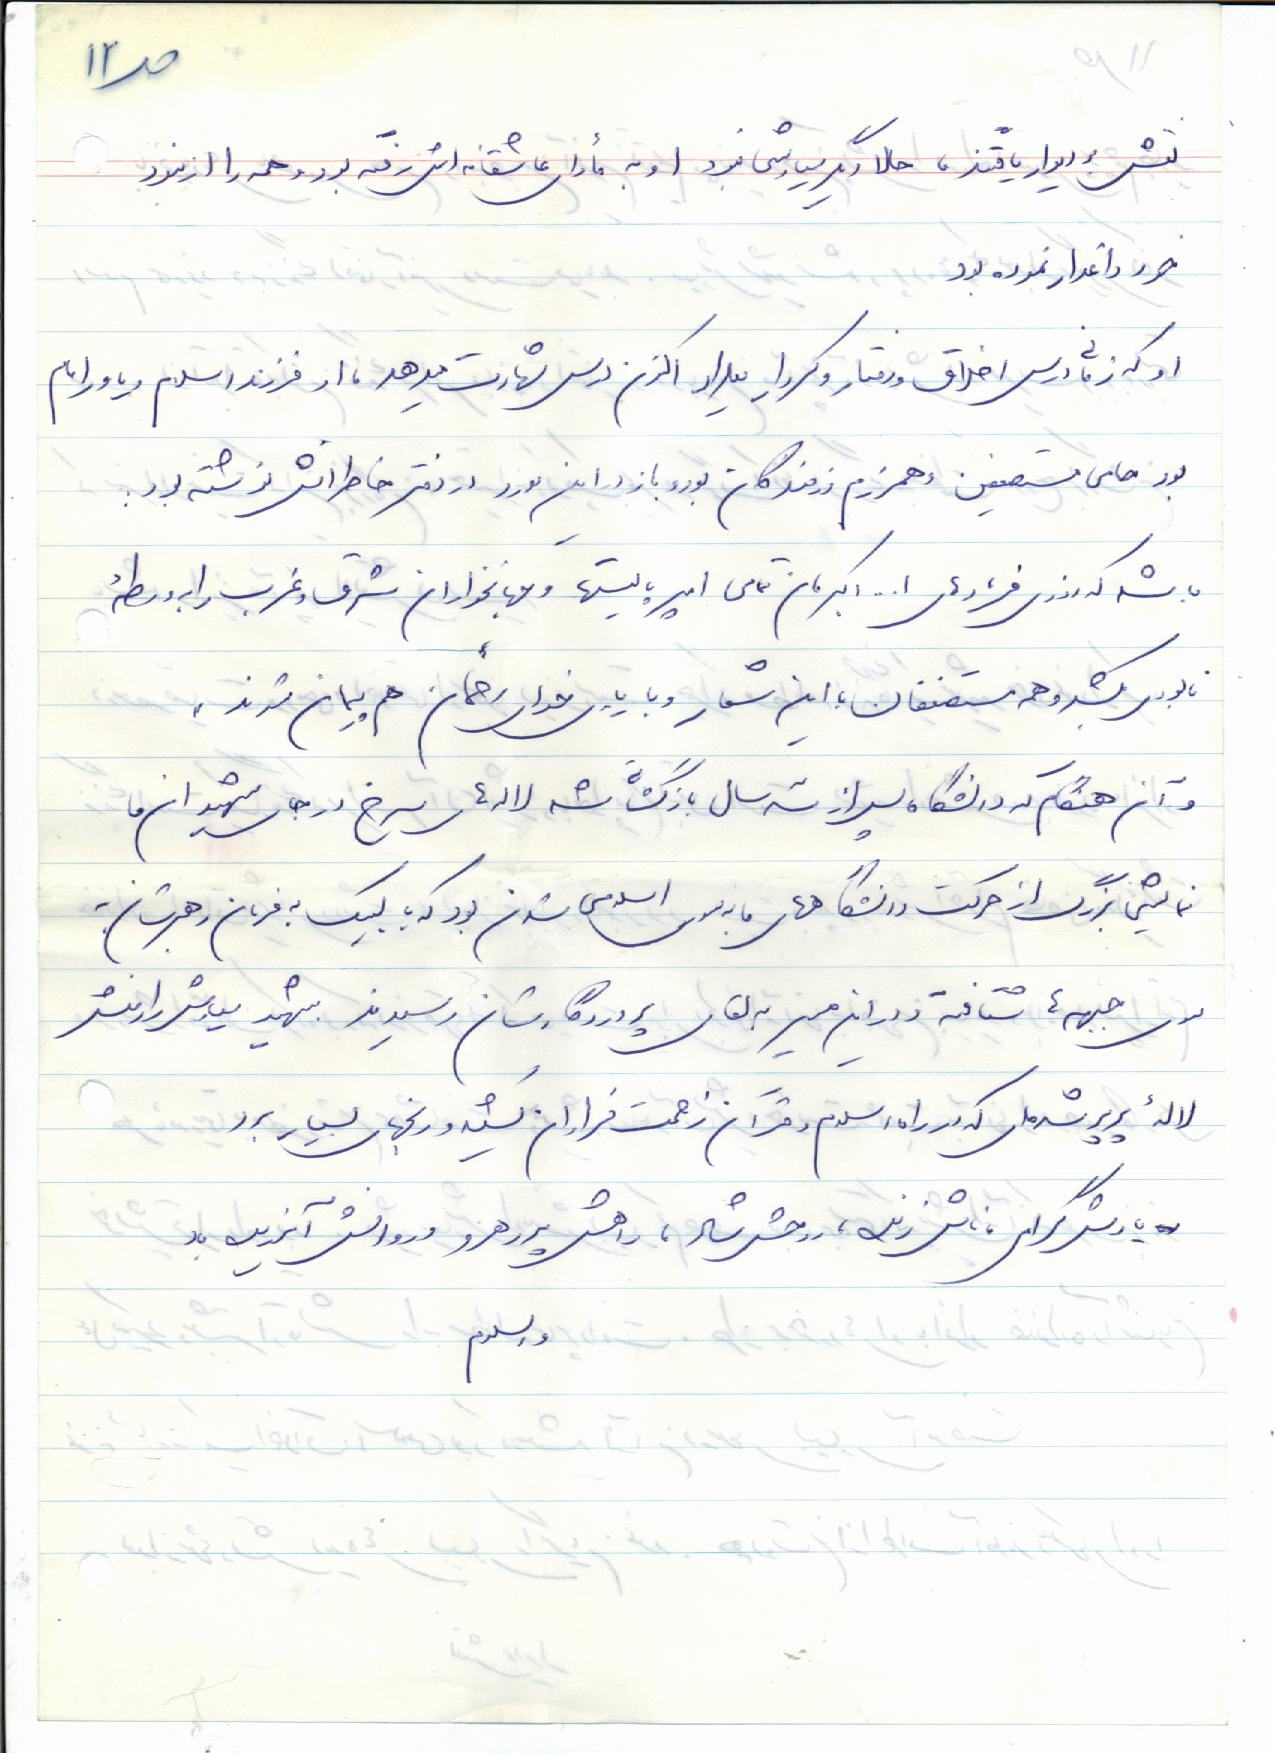 ص ۱۲
نقش بر دیوار یافتند، حالا دیگر سیاوشی نبود او به مأوای عاشقانه اش رفته بود و همه را از نبود
خود داغدار نموده بود
او که زمانی درس اخلاق و رفتار و کردار میداد اکنون درس شهادت میدهد، او فرزند اسلام و یاور امام
بود حامی مستضعفین و همرزم رزمندگان بود و باز در این مورد در دفتر خاطراتش نوشته بود:
باشد که روزی فریادهای ا... اکبرمان تمامی امپریالیستها و جهانخواران شرق و غرب را به ورطهٔ
نابودی بکشد و همه مستضعفان با این شعار و با یاری خدای رحمان هم پیمان شوند،
و آن هنگام که دانشگاه پس از سه سال بازگشائی شد لاله های سرخ در جای شهیدان ما
نمایشی بزرگ از حرکت دانشگاههای ما به سوی اسلامی شدن بود که با لبیک به فرمان رهبرشان به
سوی جبهه ها شتافته و در این مسیر به لقای پروردگارشان رسیدند شهید سیاوش رازمنش
لالهٔ پرپر شده‌ای که در راه اسلام و قرآن زحمت فراوان کشید و رنجهای بسیار برد
یادش گرامی، نامش زنده، روحش شاد، راهش پر رهرو و روانش آمرزیده باد
والسلام